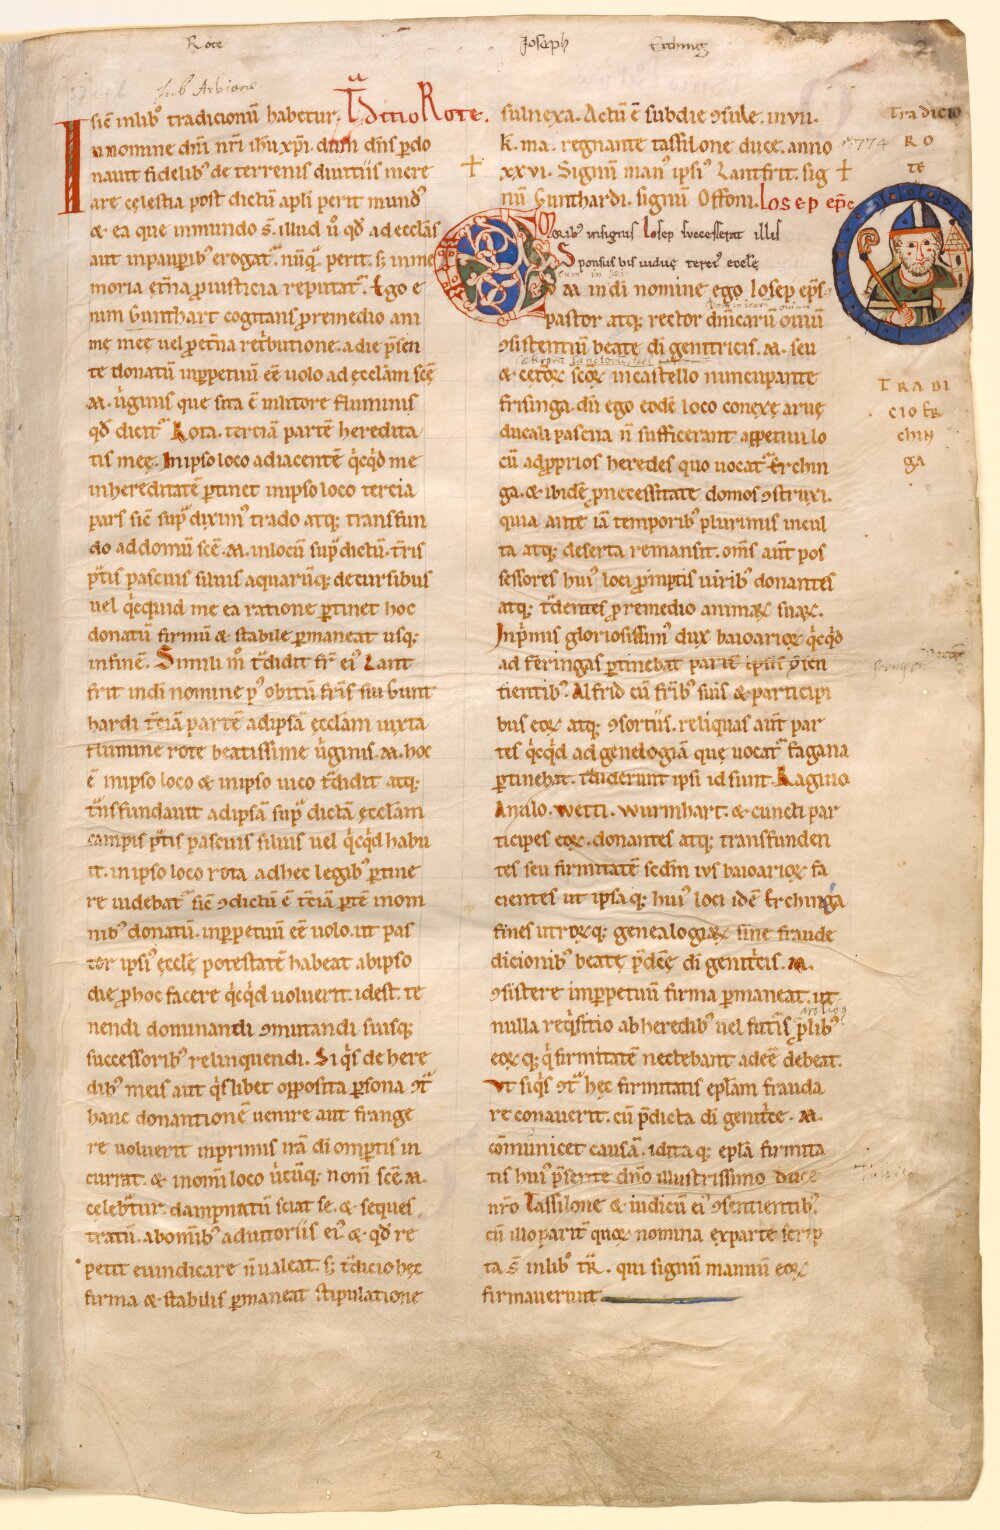 Rote
Joseph Erching
2
sub Arbione
sic̄ inlibᵒ tradicionū habetur. T̄ditio Rote.
In nomine dn̄i nr̄i ih̄u xp̄i. dum dn̄s ꝑdo
nauit fidelibꝰ de terrenis diuitiis mere
are celestia post dictū apl̄i perit mundꝰ
& ea que inmundo s̄. illud ů qđ ad eccl̄as
aut inpauꝑibꝰ erogat᷑. nūq̄ perit. sꝫ inme
moria et̄na ꝓ iusticia reputat᷑. Ego e
nim Gunthart cogitans ꝓ remedio ani
mę meę uel ꝓ et̄na ret̄butione. a die p̄sen
te donatū inꝑpetuū ee᷑ uolo ad eccl̄am scē
.M. ůginis que sita ē inlitore fluminis
qđ dicit᷑ Rota. terciā partē heredita
tis meę. Inipso loco adiacentē q̇cq̇d me
inhereditatē ꝑtinet inipso loco tercia
pars sic̄ sup᷑ diximꝰ trado atqꝫ transfun
do addomū scē .M. inlocū sup᷑ dictū. t̄ris
p̄tis pascuis siluis aquarūqꝫ decursibus
uel q̇cquid me ea ratione ꝑtinet hoc
donatū firmū & stabile ꝑmaneat usqꝫ
infinē. Simili m̊ t᷑didit fr̄ eiꝰ Lant
frit indi nomine pꝰ obitū fr̄is sui Gunt
hardi t̄ciā partē adipsā eccl̄am iuxta
flumine rote beatissime ůginis .M. hoc
ē inipso loco & inipso uico t᷑didit atqꝫ
t᷑nsfundauit adipsā sup᷑ dictā eccl̄am
campis p̄tis pascuis siluis uel q̇cq̇d habu
it. inipso loco rota adhec legibꝰ ꝑtine
re uidebat᷑ sic̄ ꝯdictū ē t̄ciā ꝑtē inom
nibꝰ donatū. inꝑpetuū ee᷑ uolo. ut pas
tor ipsiꝰ eccl̄ę potestatē habeat abipso
die ꝓ hoc facere q̇cq̇d uoluerit. idest. te
nendi dominandi ꝯmutandi suisqꝫ
successoribꝰ relinquendi. Siq̇s de here
dibꝰ meis aut q̇slibet opposita ꝑsona ꝯt᷑
hanc donationē uenire aut frange
re uoluerit inprimis irā di om̄ptis in
currat. & inom̄i loco ůcūqꝫ nom̄ scē .M.
celebt᷑ur. dampnatū sciat se. & seques
tratū. abom̄ibꝰ adiutoriis eiꝰ & qđ re
petit euindicare n̄ ualeat. sꝫ t᷑dicio hęc
firma & stabilis ꝑmaneat stipulatione
subnexa. Actū ē subdie ꝯsule. in vii.
k. ma. regnante tassilone duce. anno
xxvi. Signū manꝰ ipsiꝰ Lantfrit. sig
nū Gunthardi. signū Offoni. Iosep ep̄c
774
Tradicio
RO
TE
Moribꝰ insignis Iosep successerat illis
Sponsus bis uiduę tercius eccl̄ę
UM in di nomine ego Iosep ep̄s
pastor atqꝫ rector dn̄icarū ouiū
ꝯsistentiū beate di genitricis .M. seu
& cetoꝝ scōꝝ incastello nuncupante
frisinga. dū ego eodē loco conexę aruę
ducali pascua n̄ sufficerant appetiui lo
cū adpprios heredes quo uocat᷑ Erchin
ga. & ibidē ꝓ necessitate domos ꝯstruxi.
quia ante iā temporibꝰ plurimis incul
ta atqꝫ deserta remansit. om̄s aut̄ pos
sessores huiꝰ loci ꝓmptis uiribꝰ donantes
atqꝫ t᷑dentes ꝓ remedio animaꝝ suaꝝ.
Inp̄mis gloriosissimꝰ dux baioarioꝝ q̇cq̇d
ad feringas ꝑtinebat pariť ipsis ꝯsen
tientibꝰ. Alfrid cū fr̄ibꝰ suis & participi
bus eoꝝ atqꝫ ꝯsortiis. reliquas aut̄ par
tes q̇cq̇d ad genelogiā quę uocat᷑ fagana
ꝑtinebat. t᷑diderunt ipsi id sunt. Ragino
Anulo. Wetti. Wurmhart. & cuncti par
ticipes eoꝝ. donantes atqꝫ transfunden
tes seu firmitatē sedm̄ ius baioarioꝝ fa
cientes ut ipsa qꝫ huiꝰ loci idē Erchinga
fines utroꝝqꝫ genealogiaꝝ sine fraude
dicionibꝰ beate p̄dcę di genit̊cis .M.
ꝯsistere inꝑpetuū firma ꝑmaneat. ut
nulla req̇sitio ab heredibꝰ uel futuris p̄libꝰ
eoꝝ qꝫ q̇ firmitatē nectebant adeē debeat.
Vt siq̇s ꝯt᷑ hęc firmitatis epl̄am frauda
re conauerit. cū p̄dicta di genit̊ce .M.
cōmūnicet causā. idita qꝫ epl̄a firmita
tis huiꝰ p̄sente dn̄o illustrissimo duce
nr̄o Tassilone & iudicū eiꝰ ꝯsentientibꝰ
cū illo parit᷑ quoꝝ nomina exparte scrip
ta s̄ inlibᵒ t᷑R. qui signū manuū eoꝝ
firmauerunt.
TRADI
CIO ER
chin
ga